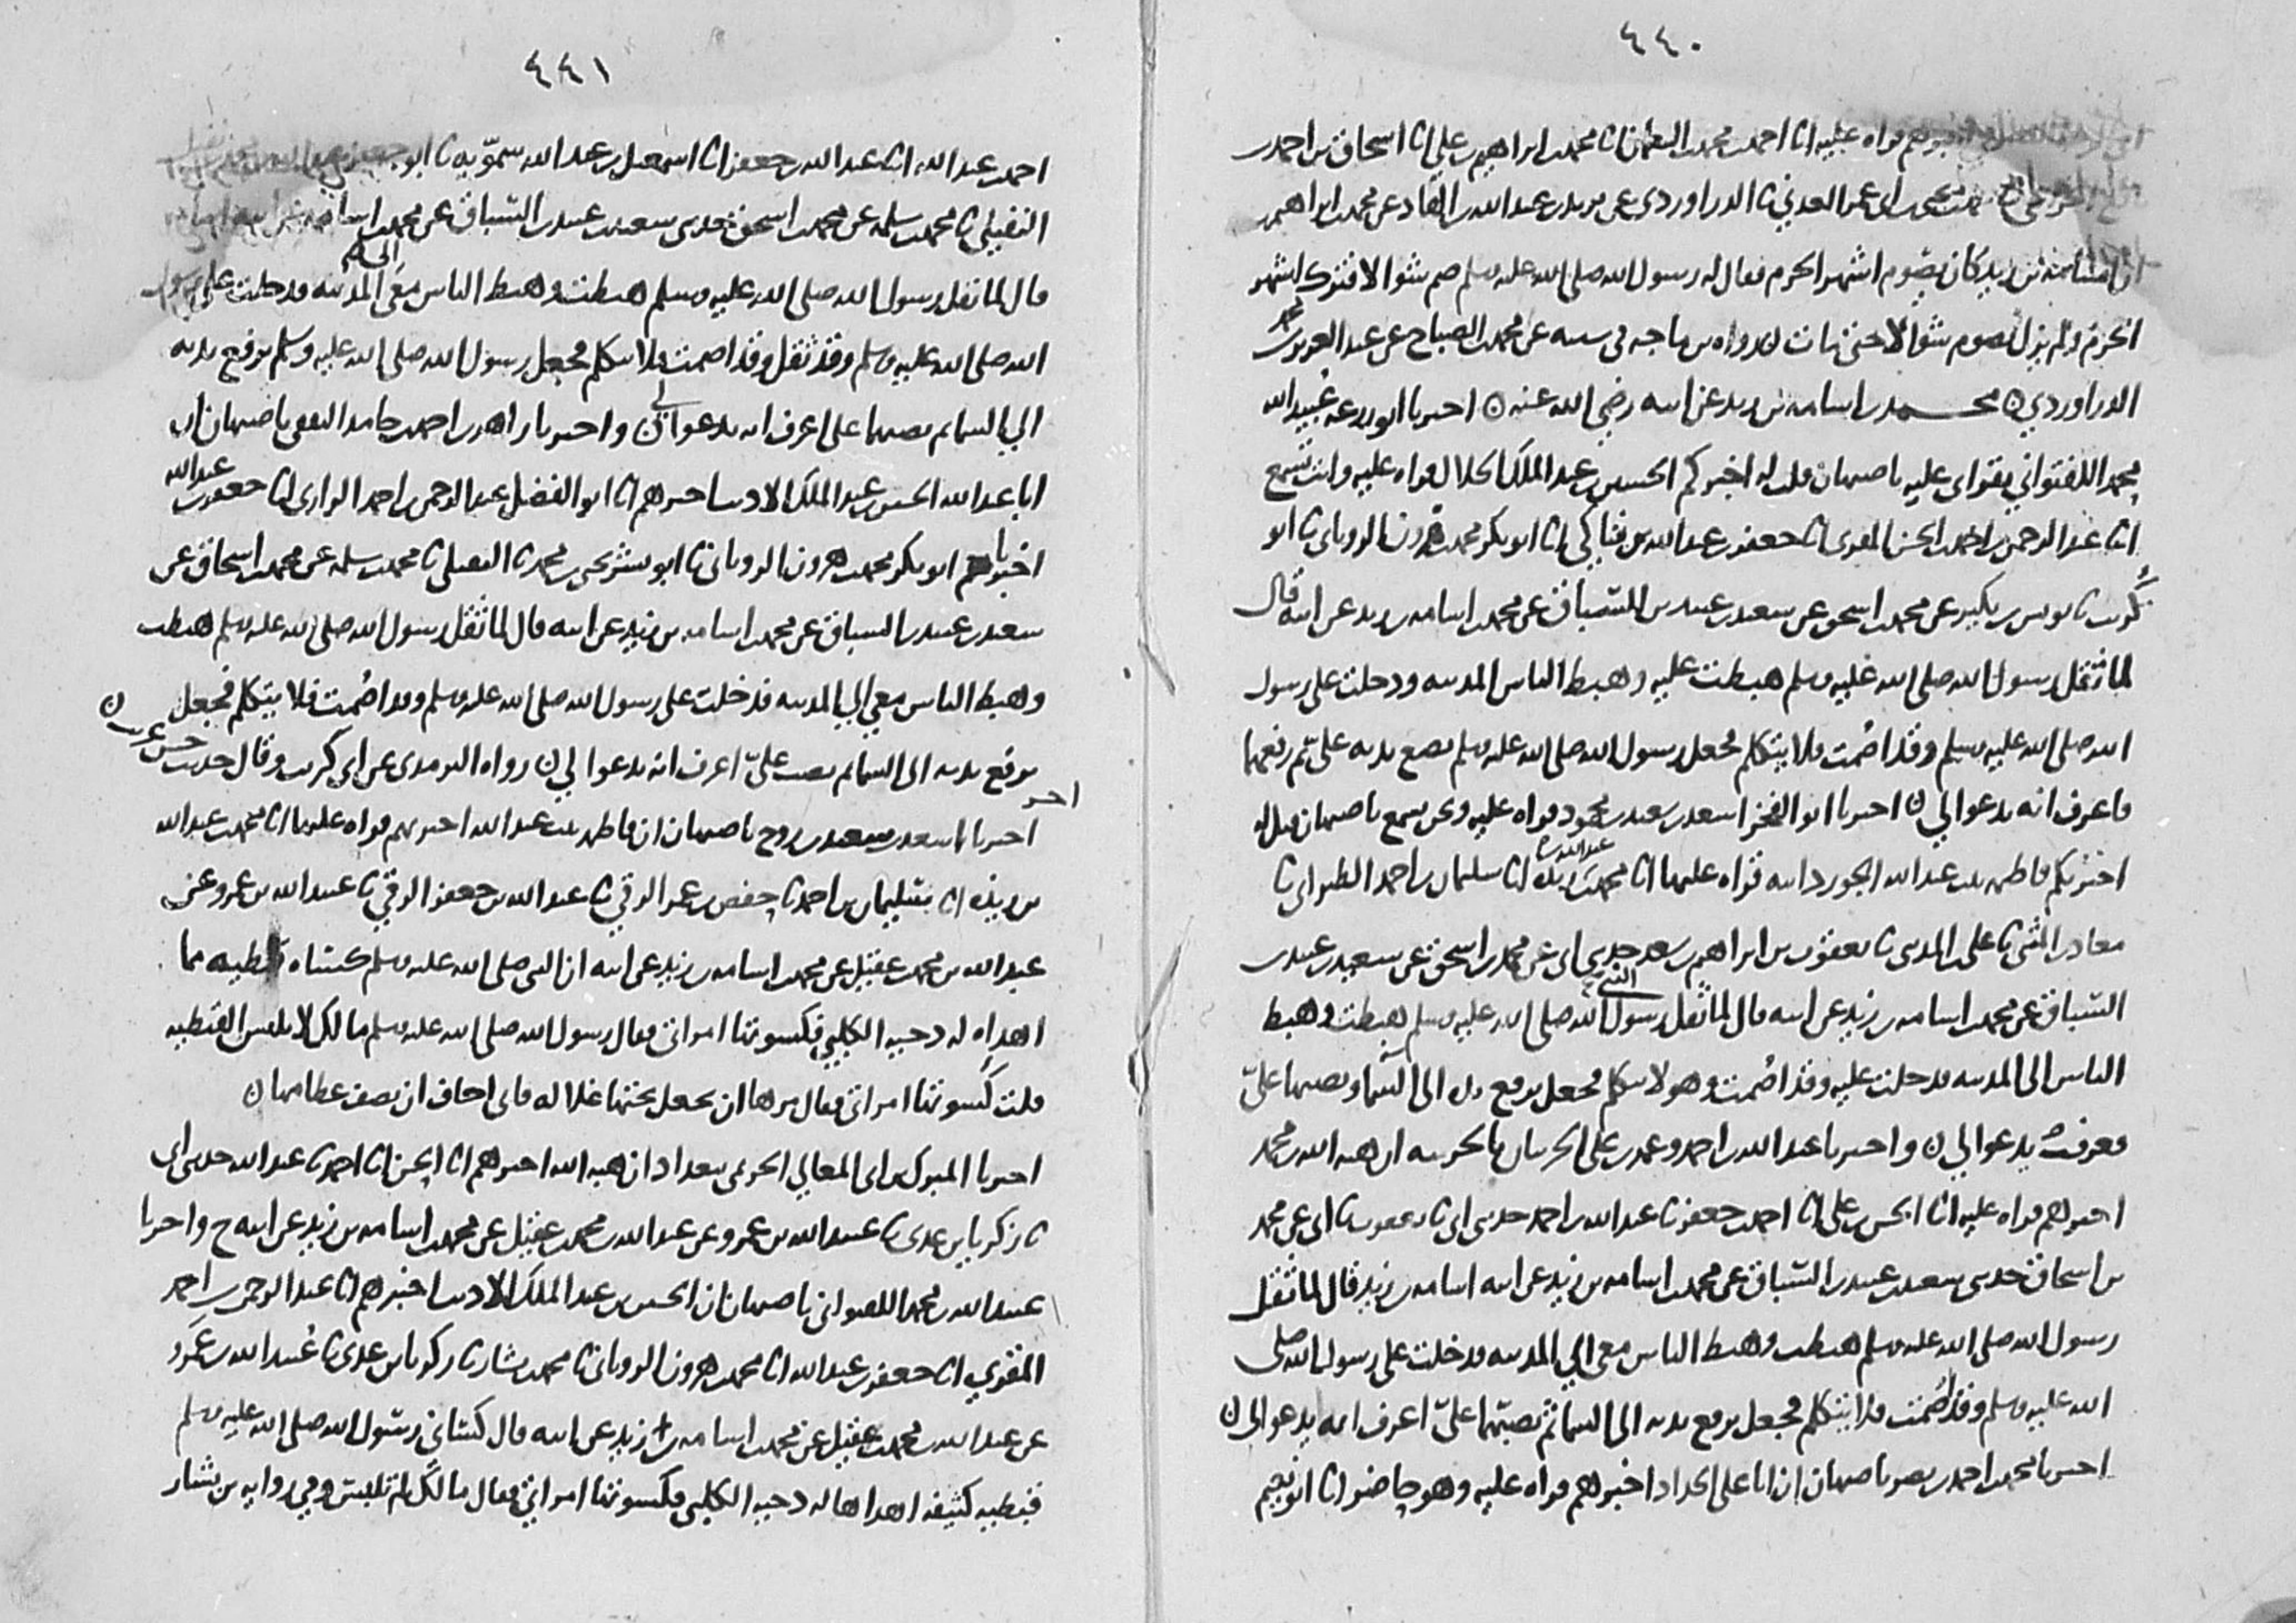 ٤٤٠
اخبرهم قراه عليه انا احمد بن محمد بن النعمان انا محمد بن ابراهيم بن علي انا اسحاق بن احمد
محمد بن يحيى بن ابي عمر العدني نا الدراوردي عن يزيد بن عبد الله بن الهاد عن محمد بن ابراهيم
ان اسامة بن زيد كان يصوم اشهر الحرم فقال له رسول الله صلى الله عليه وسلم صم شوالا فترك اشهر
الحرم ولم يزل يصوم شوالا حتى مات ن رواه بن ماجه في سننه عن محمد بن الصباح عن عبد العزيز بن محمد
الدراوردي ن محمد بن اسامة بن زيد عن ابيه رضي الله عنه ن اخبرنا ابو زرعة عبيد الله
بن محمد اللفتواني بقراتي عليه باصبهان قلت له اخبركم الحسين بن عبد الملك الخلال قراه عليه وانت تسمع
انا عبد الرحمن بن احمد بن الحسن المقري انا جعفر بن عبد الله بن فناكي انا ابو بكر محمد بن هرون الروياني نا ابو
كريب نا يونس بن بكير عن محمد بن اسحق عن سعيد بن عبيد بن السباق عن محمد بن اسامه بن زيد عن ابيه قال
لما ثقل رسول الله صلى الله عليه وسلم هبطت عليه وهبط الناس المدينه ودخلت على رسول
الله صلى الله عليه وسلم وقد اصمت فلا يتكلم فجعل رسول الله صلى الله عليه وسلم يضع يديه علي ثم رفعهما
فاعرف انه يدعوا لي ن اخبرنا ابو الفخر اسعد بن سعيد بن محمود قراه عليه ونحن نسمع باصبهان قيل له
اخبرتكم فاطمه بنت عبد الله الجوزدانيه قراه عليها انا محمد بن عبد الله بن ريذه انا سليمان بن احمد الطبراني نا
معاذ بن المثنى نا علي بن المديني نا يعقوب بن ابراهيم بن سعد حدثني ابي عن محمد بن اسحق عن سعيد بن عبيد بن
السباق عن محمد بن اسامه بن زيد عن ابيه قال لما ثقل رسول الله النبي صلى الله عليه وسلم هبطت وهبط
الناس الى المدينه فدخلت عليه وقد اصمت وهو لا يتكلم فجعل يرفع يده الى السما ويصبها علي
فعرفت انه يدعوا لي ن واخبرنا عبد الله بن احمد وعمر بن علي الحربيان بالحربيه ان هبه الله بن محمد
اخبرهم قراه عليه انا الحسن بن علي انا احمد بن جعفر نا عبد الله بن احمد حدثني ابي نا يعقوب نا ابي عن محمد
بن اسحاق حدثني سعيد بن عبيد بن السباق عن محمد بن اسامه بن زيد عن ابيه اسامه بن زيد قال لما ثقل
رسول الله صلى الله عليه وسلم هبطت وهبط الناس معي الي المدينه فدخلت على رسول الله صلى
الله عليه وسلم وقد اصمت فلا يتكلم فجعل يرفع يديه الى السما ثم يصبهما علي اعرف انه يدعوا لي ن
اخبرنا محمد بن احمد بن نصر باصبهان ان ابا علي الحداد اخبرهم قراه عليه وهو حاضر انا ابو نعيم
٤٤١
احمد بن عبد الله انا عبد الله بن جعفر انا اسمعيل بن عبد الله سمويه نا ابو جعفر
النفيلي نا محمد بن سلمه عن محمد بن اسحق حدثني سعيد بن عبيد بن السباق عن محمد بن اسامه بن زيد عن ابيه
قال لما ثقل رسول الله صلى الله عليه وسلم هبطت وهبط الناس معي الى المدينه فدخلت على رسول
الله صلى الله عليه وسلم وقد ثقل وقد اصمت فلا يتكلم فجعل رسول الله صلى الله عليه وسلم يرفع يديه
الي السما ثم يصبهما علي اعرف انه يدعوا لي ن واخبرنا زاهر بن احمد بن حامد الثقفي باصبهان ان
ابا عبد الله الحسين بن عبد الملك الاديب اخبرهم انا ابو الفضل عبد الرحمن بن احمد الرازي انا جعفر بن عبد الله
اخبرنا ابو بكر محمد بن هرون الروياني نا ابو بشر يحيى بن محمد نا النفيلي نا محمد بن سلمه عن محمد بن اسحاق عن
سعيد بن عبيد بن السباق عن محمد بن اسامه بن زيد عن ابيه قال لما ثقل رسول الله صلى الله عليه وسلم هبطت
وهبط الناس معي الي المدينه فدخلت على رسول الله صلى الله عليه وسلم وقد اصمت فلا يتكلم فجعل
يرفع يديه الى السما ثم يصب علي اعرف انه يدعوا لي ن رواه الترمذي عن ابي كريب وقال حديث حسن غريب ن
اخر
اخبرنا اسعد بن سعيد بن روح باصبهان ان فاطمه بنت عبد الله اخبرتهم قراه عليها انا محمد بن عبد الله
بن ريذه انا سليمان بن احمد نا حفص بن عمر الرقي نا عبد الله بن جعفر الرقي نا عبيد الله بن عمرو عن
عبد الله بن محمد بن عقيل عن محمد بن اسامه بن زيد عن ابيه ان النبي صلى الله عليه وسلم كساه قبطيه مما
اهداه له دحيه الكلبي فكسوتها امراتي فقال رسول الله صلى الله عليه وسلم مالك لا تلبس القبطيه
قلت كسوتها امراتي فقال مرها ان تجعل تحتها غلاله فاني اخاف ان تصف عظامها ن
اخبرنا المبرك بن ابي المعالي الحريمي ببغداد ان هبه الله اخبرهم انا الحسن انا احمد نا عبد الله حدثني ابي
نا زكريا بن عدي نا عبيد الله بن عمرو عن عبد الله بن محمد بن عقيل عن محمد بن اسامه بن زيد عن ابيه ح واخبرنا
عبيد الله بن محمد اللفتواني باصبهان ان الحسين بن عبد الملك الاديب اخبرهم انا عبد الرحمن بن احمد
المقري انا جعفر بن عبد الله انا محمد بن هرون الروياني نا محمد بن بشار نا زكريا بن عدي نا عبيد الله بن عمرو
عن عبد الله بن محمد بن عقيل عن محمد بن اسامه بن زيد عن ابيه قال كساني رسول الله صلى الله عليه وسلم
قبطيه كثيفه اهداها له دحيه الكلبي فكسوتها امراتي فقال مالك لم تلبس وفي روايه بن بشار